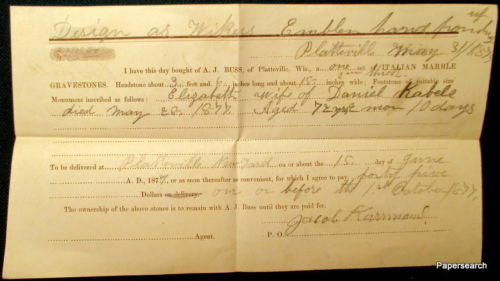 Design as Wikers Emblem hand pointing up
Platteville May 31/1877
I have this day bought of A. J. BUSS, of Platteville, Wis., a one set ITALIAN MARBLE
GRAVESTONES. Headstone about 3 feet and 6 inches long and about 18 inches wide. Footstone of suitable size
Monument inscribed as follows: Elizabeth wife of Daniel Kabele
died May 23. 1877 Aged 72 yrs mon 10 days
To be delivered at Platteville New Yard on or about the 15 day of June
A. D., 1877, or as soon thereafter as convenient, for which I agree to pay forty five
Dollars on delivery. on or before the 1st October 1877,
The ownership of the above stones is to remain with A. J. Buss until they are paid for.
Jacob Karrmann
Agent. P. O.
Papersearch